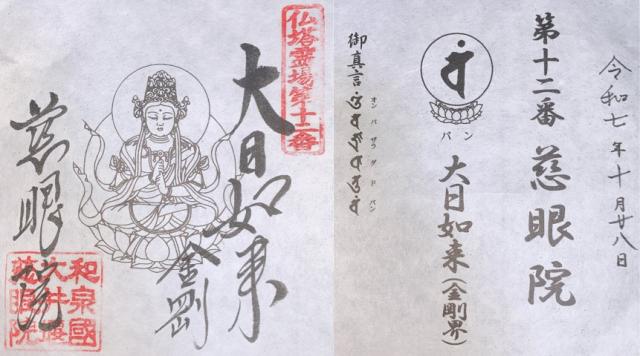 仏塔霊場第十二番
大日如来
金剛
慈眼院
和泉國
大井堰
慈眼院
令和七年十月廿八日
第十二番 慈眼院
バン
大日如来(金剛界)
御真言
オン バ ザラ ダ ド バン